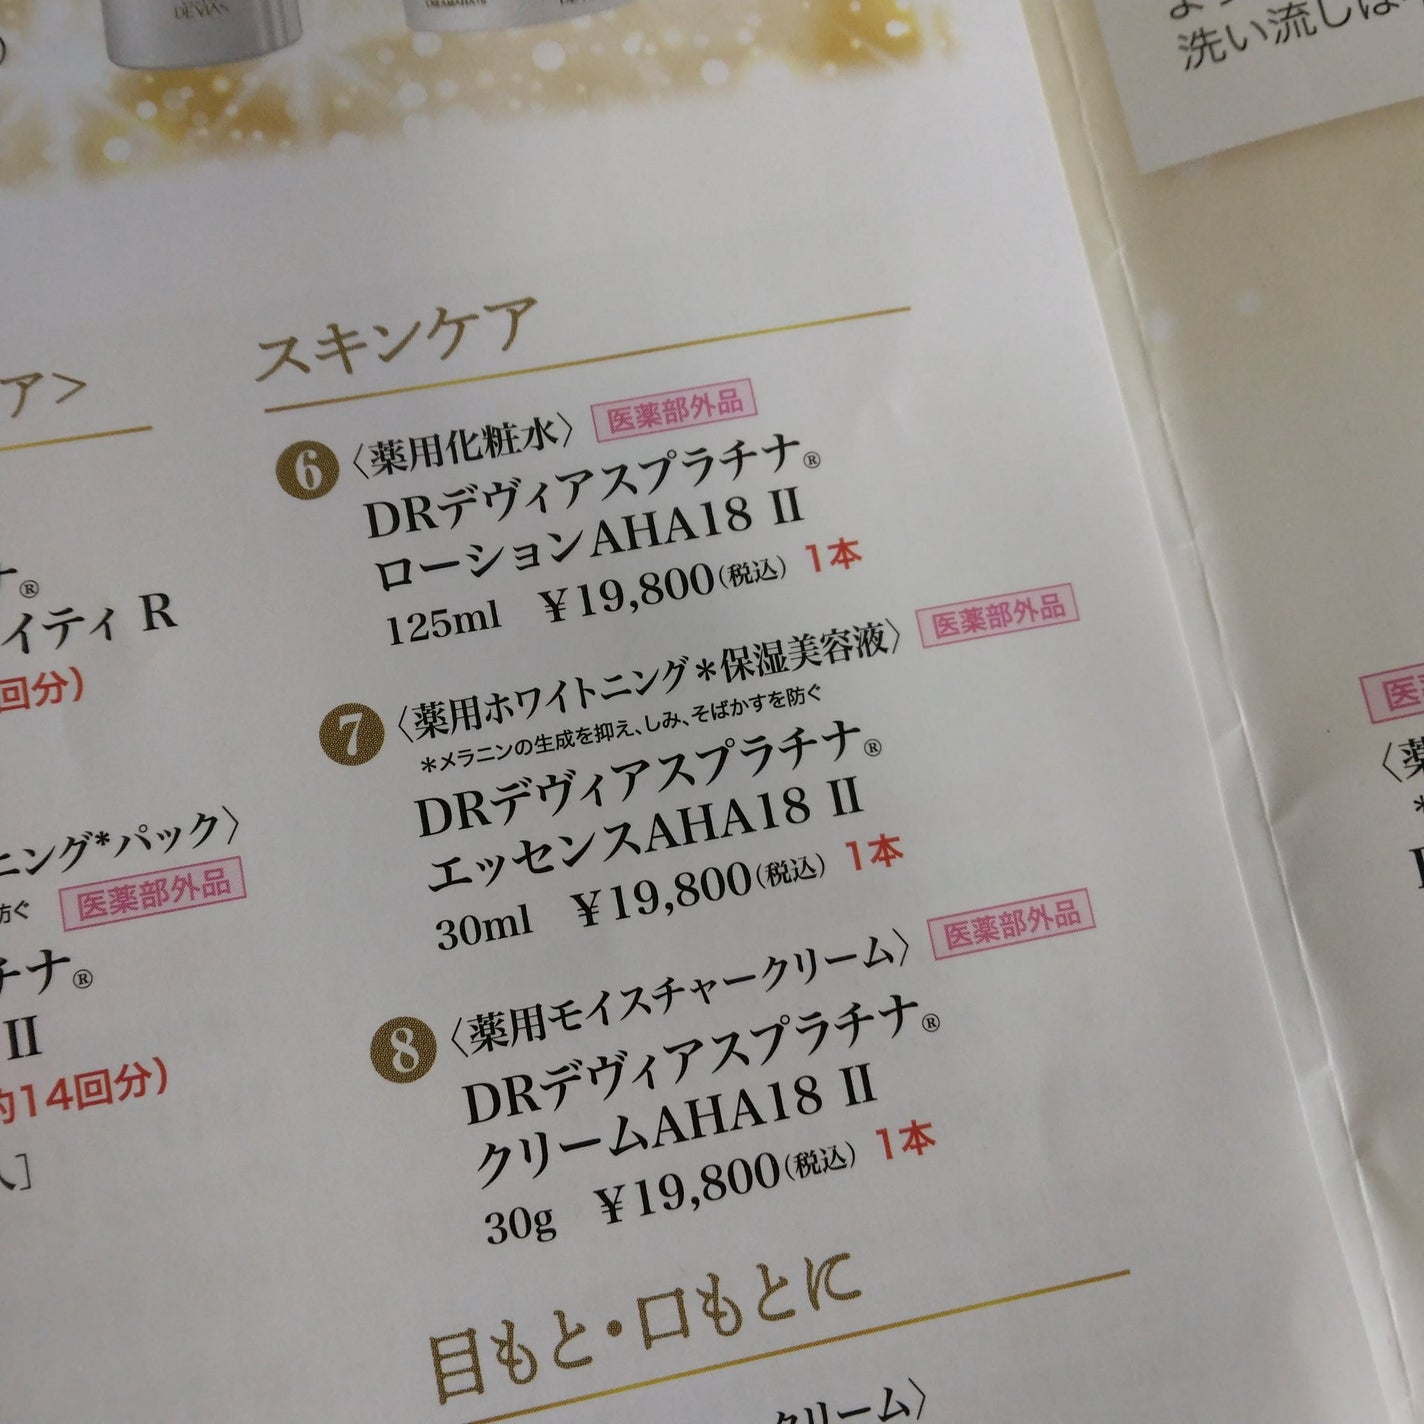 DEVIAS
洗い流し
ア＞
イティ R
回分）
ニング*パック〉
防ぐ 医薬部外品
チナ®
II
約14回分）
スキンケア
6 〈薬用化粧水〉 医薬部外品
DRデヴィアスプラチナ®
ローションAHA18 II
125ml ￥19,800(税込) 1本
7 〈薬用ホワイトニング＊保湿美容液〉 医薬部外品
＊メラニンの生成を抑え、しみ、そばかすを防ぐ
DRデヴィアスプラチナ®
エッセンスAHA18 II
30ml ￥19,800(税込) 1本
8 〈薬用モイスチャークリーム〉 医薬部外品
DRデヴィアスプラチナ®
クリームAHA18 II
30g ￥19,800(税込) 1本
目もと・口もとに
クリーム〉